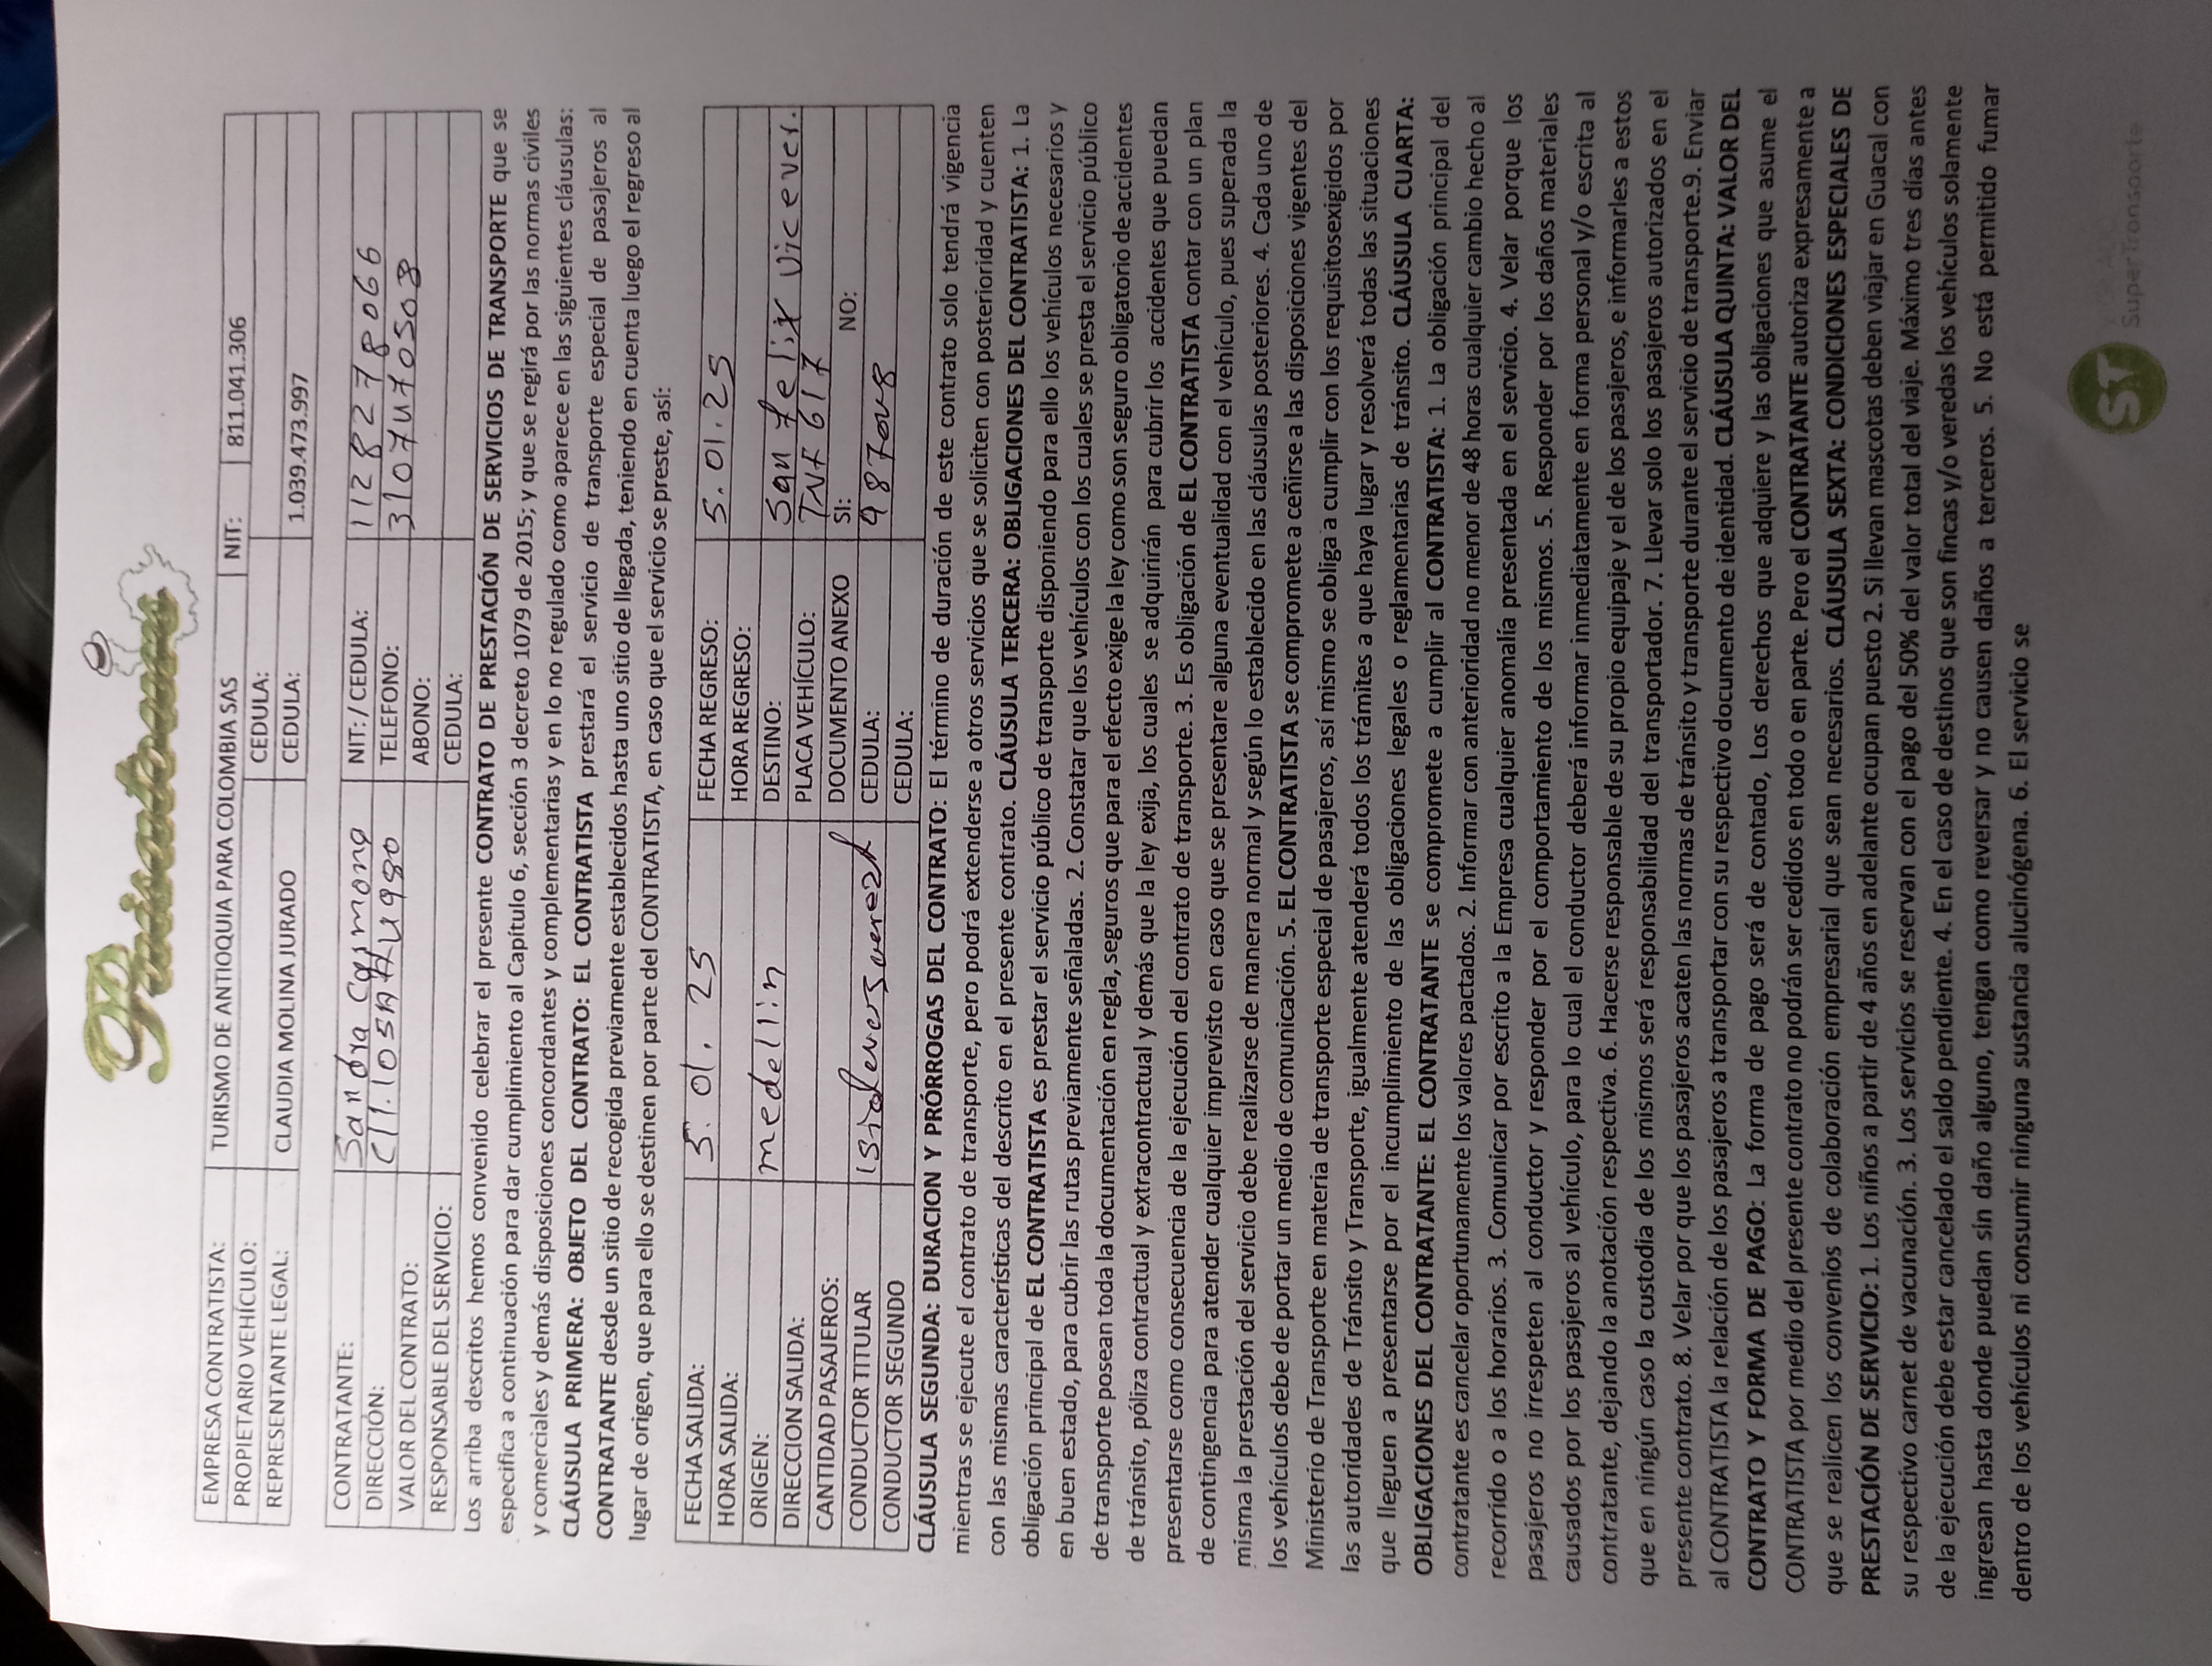 EMPRESA CONTRATISTA: TURISMO DE ANTIOQUIA PARA COLOMBIA SAS NIT: 811.041.306
PROPIETARIO VEHÍCULO: CEDULA:
REPRESENTANTE LEGAL: CLAUDIA MOLINA JURADO CEDULA: 1.039.473.997
CONTRATANTE: Sandra Carmona NIT:/ CEDULA: 1128278066
DIRECCIÓN: TELEFONO: 3107470508
VALOR DEL CONTRATO: ABONO:
RESPONSABLE DEL SERVICIO: CEDULA:
Los arriba descritos hemos convenido celebrar el presente CONTRATO DE PRESTACIÓN DE SERVICIOS DE TRANSPORTE que se
especifica a continuación para dar cumplimiento al Capítulo 6, sección 3 decreto 1079 de 2015; y que se regirá por las normas civiles
y comerciales y demás disposiciones concordantes y complementarias y en lo no regulado como aparece en las siguientes cláusulas:
CLÁUSULA PRIMERA: OBJETO DEL CONTRATO: EL CONTRATISTA prestará el servicio de transporte especial de pasajeros al
CONTRATANTE desde un sitio de recogida previamente establecidos hasta uno sitio de llegada, teniendo en cuenta luego el regreso al
lugar de origen, que para ello se destinen por parte del CONTRATISTA, en caso que el servicio se preste, así:
FECHA SALIDA: 5. 01. 25 FECHA REGRESO: 5. 01. 25
HORA SALIDA: HORA REGRESO:
ORIGEN: medellin DESTINO: San felix vicever.
DIRECCION SALIDA: PLACA VEHÍCULO: TNF 617
CANTIDAD PASAJEROS: DOCUMENTO ANEXO SI: NO:
CONDUCTOR TITULAR CEDULA:
CONDUCTOR SEGUNDO CEDULA:
CLÁUSULA SEGUNDA: DURACION Y PRÓRROGAS DEL CONTRATO: El término de duración de este contrato solo tendrá vigencia
mientras se ejecute el contrato de transporte, pero podrá extenderse a otros servicios que se soliciten con posterioridad y cuenten
con las mismas características del descrito en el presente contrato. CLÁUSULA TERCERA: OBLIGACIONES DEL CONTRATISTA: 1. La
obligación principal de EL CONTRATISTA es prestar el servicio público de transporte disponiendo para ello los vehículos necesarios y
en buen estado, para cubrir las rutas previamente señaladas. 2. Constatar que los vehículos con los cuales se presta el servicio público
de transporte posean toda la documentación en regla, seguros que para el efecto exige la ley como son seguro obligatorio de accidentes
de tránsito, póliza contractual y extracontractual y demás que la ley exija, los cuales se adquirirán para cubrir los accidentes que puedan
presentarse como consecuencia de la ejecución del contrato de transporte. 3. Es obligación de EL CONTRATISTA contar con un plan
de contingencia para atender cualquier imprevisto en caso que se presentare alguna eventualidad con el vehículo, pues superada la
misma la prestación del servicio debe realizarse de manera normal y según lo establecido en las cláusulas posteriores. 4. Cada uno de
los vehículos debe de portar un medio de comunicación. 5. EL CONTRATISTA se compromete a ceñirse a las disposiciones vigentes del
Ministerio de Transporte en materia de transporte especial de pasajeros, así mismo se obliga a cumplir con los requisitosexigidos por
las autoridades de Tránsito y Transporte, igualmente atenderá todos los trámites a que haya lugar y resolverá todas las situaciones
que lleguen a presentarse por el incumplimiento de las obligaciones legales o reglamentarias de tránsito. CLÁUSULA CUARTA:
OBLIGACIONES DEL CONTRATANTE: EL CONTRATANTE se compromete a cumplir al CONTRATISTA: 1. La obligación principal del
contratante es cancelar oportunamente los valores pactados. 2. Informar con anterioridad no menor de 48 horas cualquier cambio hecho al
recorrido o a los horarios. 3. Comunicar por escrito a la Empresa cualquier anomalía presentada en el servicio. 4. Velar porque los
pasajeros no irrespeten al conductor y responder por el comportamiento de los mismos. 5. Responder por los daños materiales
causados por los pasajeros al vehículo, para lo cual el conductor deberá informar inmediatamente en forma personal y/o escrita al
contratante, dejando la anotación respectiva. 6. Hacerse responsable de su propio equipaje y el de los pasajeros, e informarles a estos
que en ningún caso la custodia de los mismos será responsabilidad del transportador. 7. Llevar solo los pasajeros autorizados en el
presente contrato. 8. Velar por que los pasajeros acaten las normas de tránsito y transporte durante el servicio de transporte.9. Enviar
al CONTRATISTA la relación de los pasajeros a transportar con su respectivo documento de identidad. CLÁUSULA QUINTA: VALOR DEL
CONTRATO Y FORMA DE PAGO: La forma de pago será de contado, Los derechos que adquiere y las obligaciones que asume el
CONTRATISTA por medio del presente contrato no podrán ser cedidos en todo o en parte. Pero el CONTRATANTE autoriza expresamente a
que se realicen los convenios de colaboración empresarial que sean necesarios. CLÁUSULA SEXTA: CONDICIONES ESPECIALES DE
PRESTACIÓN DE SERVICIO: 1. Los niños a partir de 4 años en adelante ocupan puesto 2. Si llevan mascotas deben viajar en Guacal con
su respectivo carnet de vacunación. 3. Los servicios se reservan con el pago del 50% del valor total del viaje. Máximo tres días antes
de la ejecución debe estar cancelado el saldo pendiente. 4. En el caso de destinos que son fincas y/o veredas los vehículos solamente
ingresan hasta donde puedan sin daño alguno, tengan como reversar y no causen daños a terceros. 5. No está permitido fumar
dentro de los vehículos ni consumir ninguna sustancia alucinógena. 6. El servicio se
ST
SuperTransporte